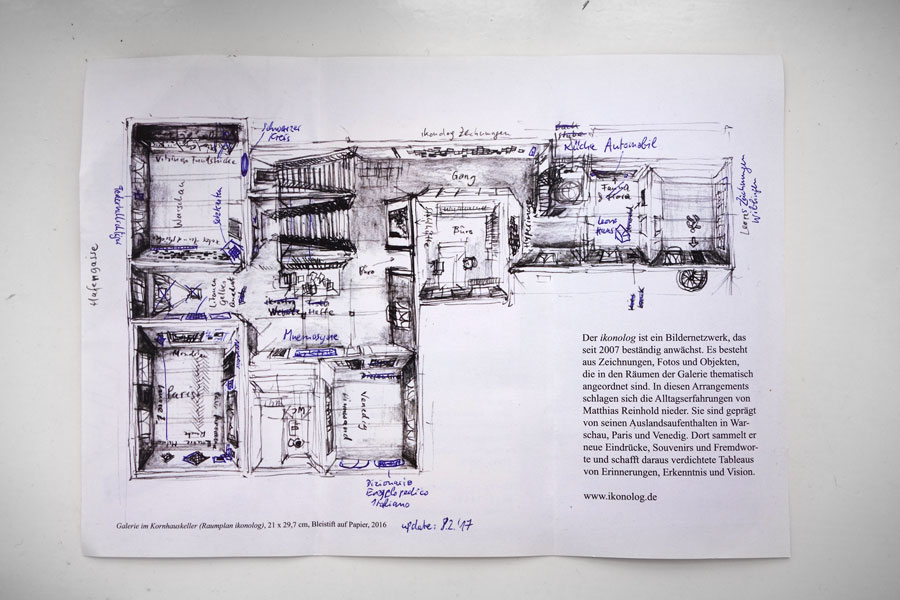 Schwarzer
Kreis
ikonolog Zeichnungen
Küche Automobil
Gang
Fauna
& Flora
Warschau
Leons
Haus
Büro
Büro
Leons Zeichnungen
Hafengasse
Hefte
Mnemosyne
Paris
Venedig
WC
Dizionario
Enzyclopedico
Italiano
Der ikonolog ist ein Bildernetzwerk, das
seit 2007 beständig anwächst. Es besteht
aus Zeichnungen, Fotos und Objekten,
die in den Räumen der Galerie thematisch
angeordnet sind. In diesen Arrangements
schlagen sich die Alltagserfahrungen von
Matthias Reinhold nieder. Sie sind geprägt
von seinen Auslandsaufenthalten in War-
schau, Paris und Venedig. Dort sammelt er
neue Eindrücke, Souvenirs und Fremdwor-
te und schafft daraus verdichtete Tableaus
von Erinnerungen, Erkenntnis und Vision.
www.ikonolog.de
Galerie im Kornhauskeller (Raumplan ikonolog), 21 x 29,7 cm, Bleistift auf Papier, 2016
update: 8.2.'17